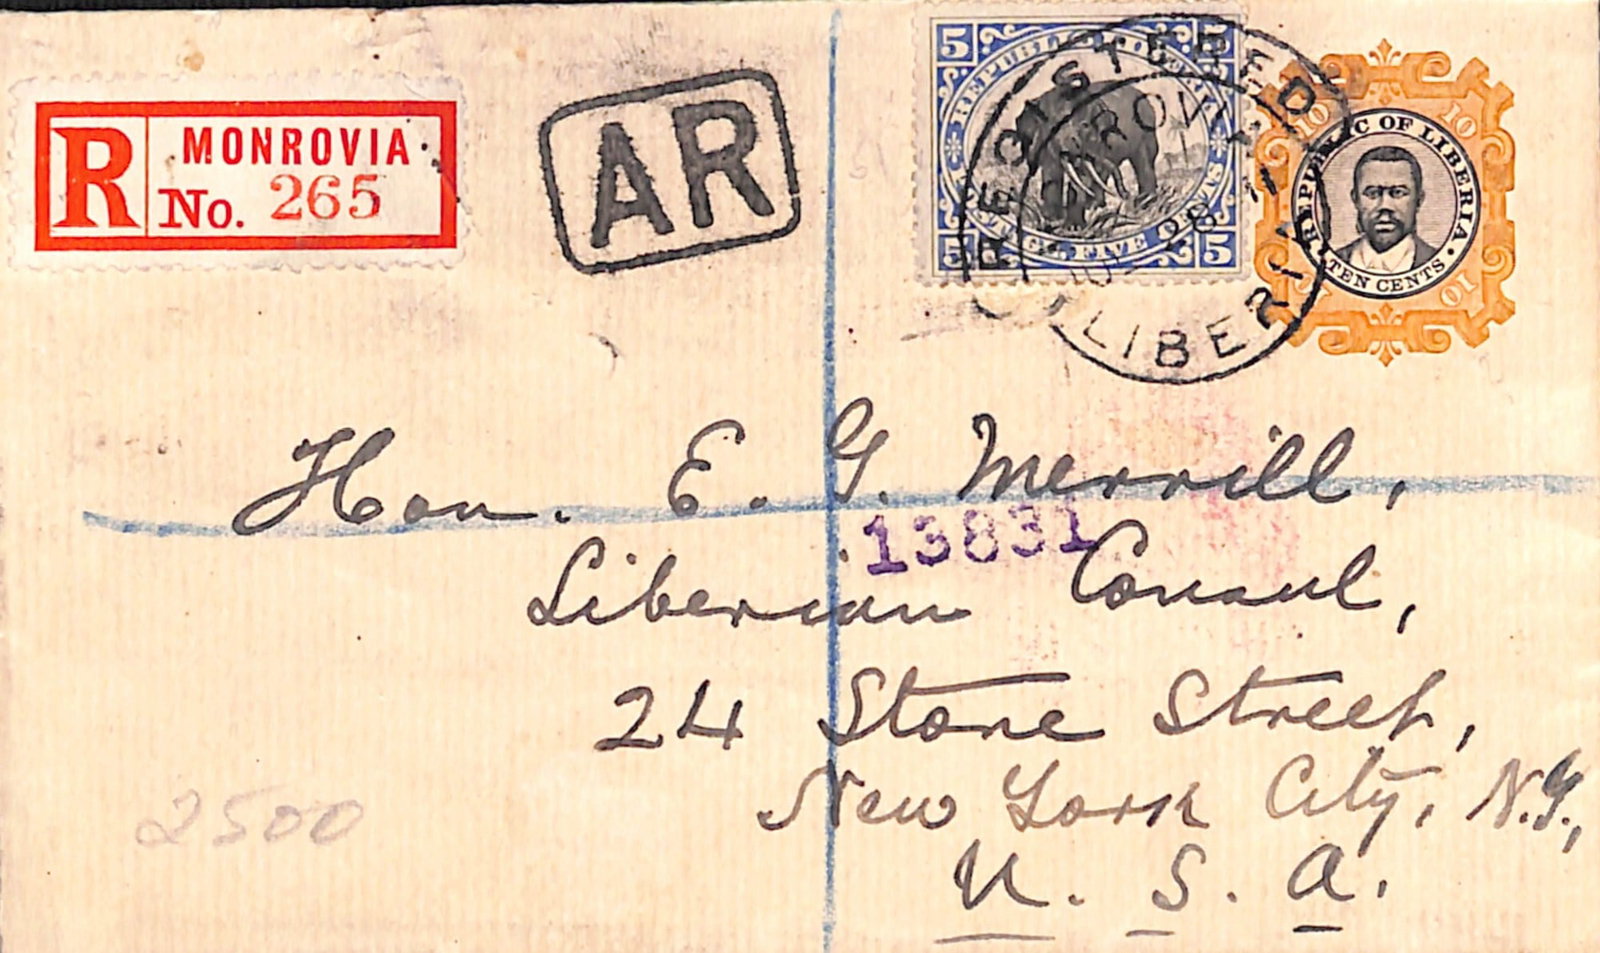 R MONROVIA
No. 265
AR
5 5
REPUBLIC OF LIBERIA
POSTAGE. FIVE CENTS
5 5
REGISTERED
MONROVIA
28
LIBERIA
10 10
REPUBLIC OF LIBERIA
TEN CENTS
10
Hon. E. G. Merrill,
13831
Liberian Consul,
24 Stone Street,
New York City, N.Y.,
U. S. A.
2500